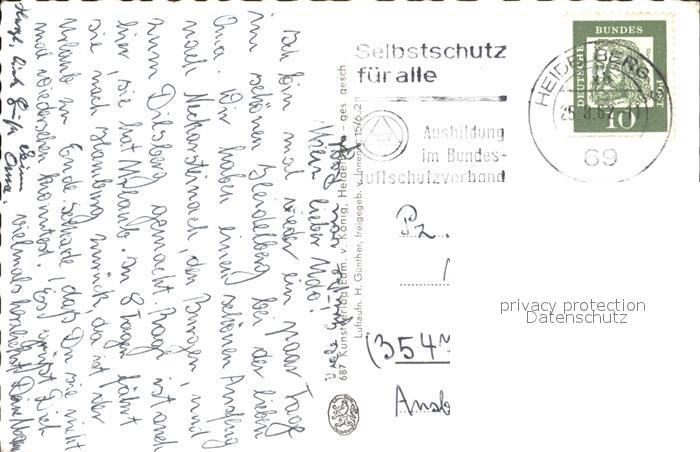 Mein lieber Udo!
Ich bin mal wieder ein paar Tage
im schönen Heidelberg bei der lieben
Oma. Wir haben einen schönen Ausflug
nach Neckarsteinach, den Burgen, und
zum Dilsberg gemacht. ist auch
hier, sie hat Urlaub. In 8 Tagen fährt
sie nach Hamburg zurück, da ist der
Urlaub zu Ende. Schade, daß Du sie nicht
mal wiedersehen konntest. Es grüßt Dich
vielmals herzlichst Deine
Oma.
viele Grüße von
687 Kunstverlag Edm. v. König, Heidelberg - ges. gesch
Luftaufn. H. Günther, freigegeb. v. Innenm.
Selbstschutz
für alle
Ausbildung
im Bundes-
luftschutzverband
HEIDELBERG
69
DEUTSCHE BUNDESPOST
10
Pz.
(354
Ansb
privacy protection
Datenschutz